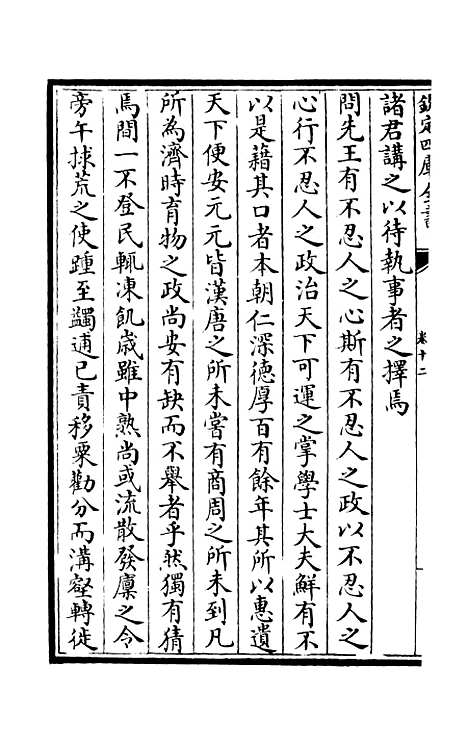 欽定四庫全書
卷十二
諸君講之以待執事者之擇焉
問先王有不忍人之心斯有不忍人之政以不忍人之
心行不忍人之政治天下可運之掌學士大夫鮮有不
以是藉其口者本朝仁深德厚百有餘年其所以惠遺
天下便安元元皆漢唐之所未嘗有商周之所未到凡
所為濟時育物之政尚安有缺而不舉者乎然獨有猜
焉間一不登民輒凍飢歲雖中熟尚或流散發廩之令
旁午捄荒之使踵至蠲逋已責移粟勸分而溝壑轉徙